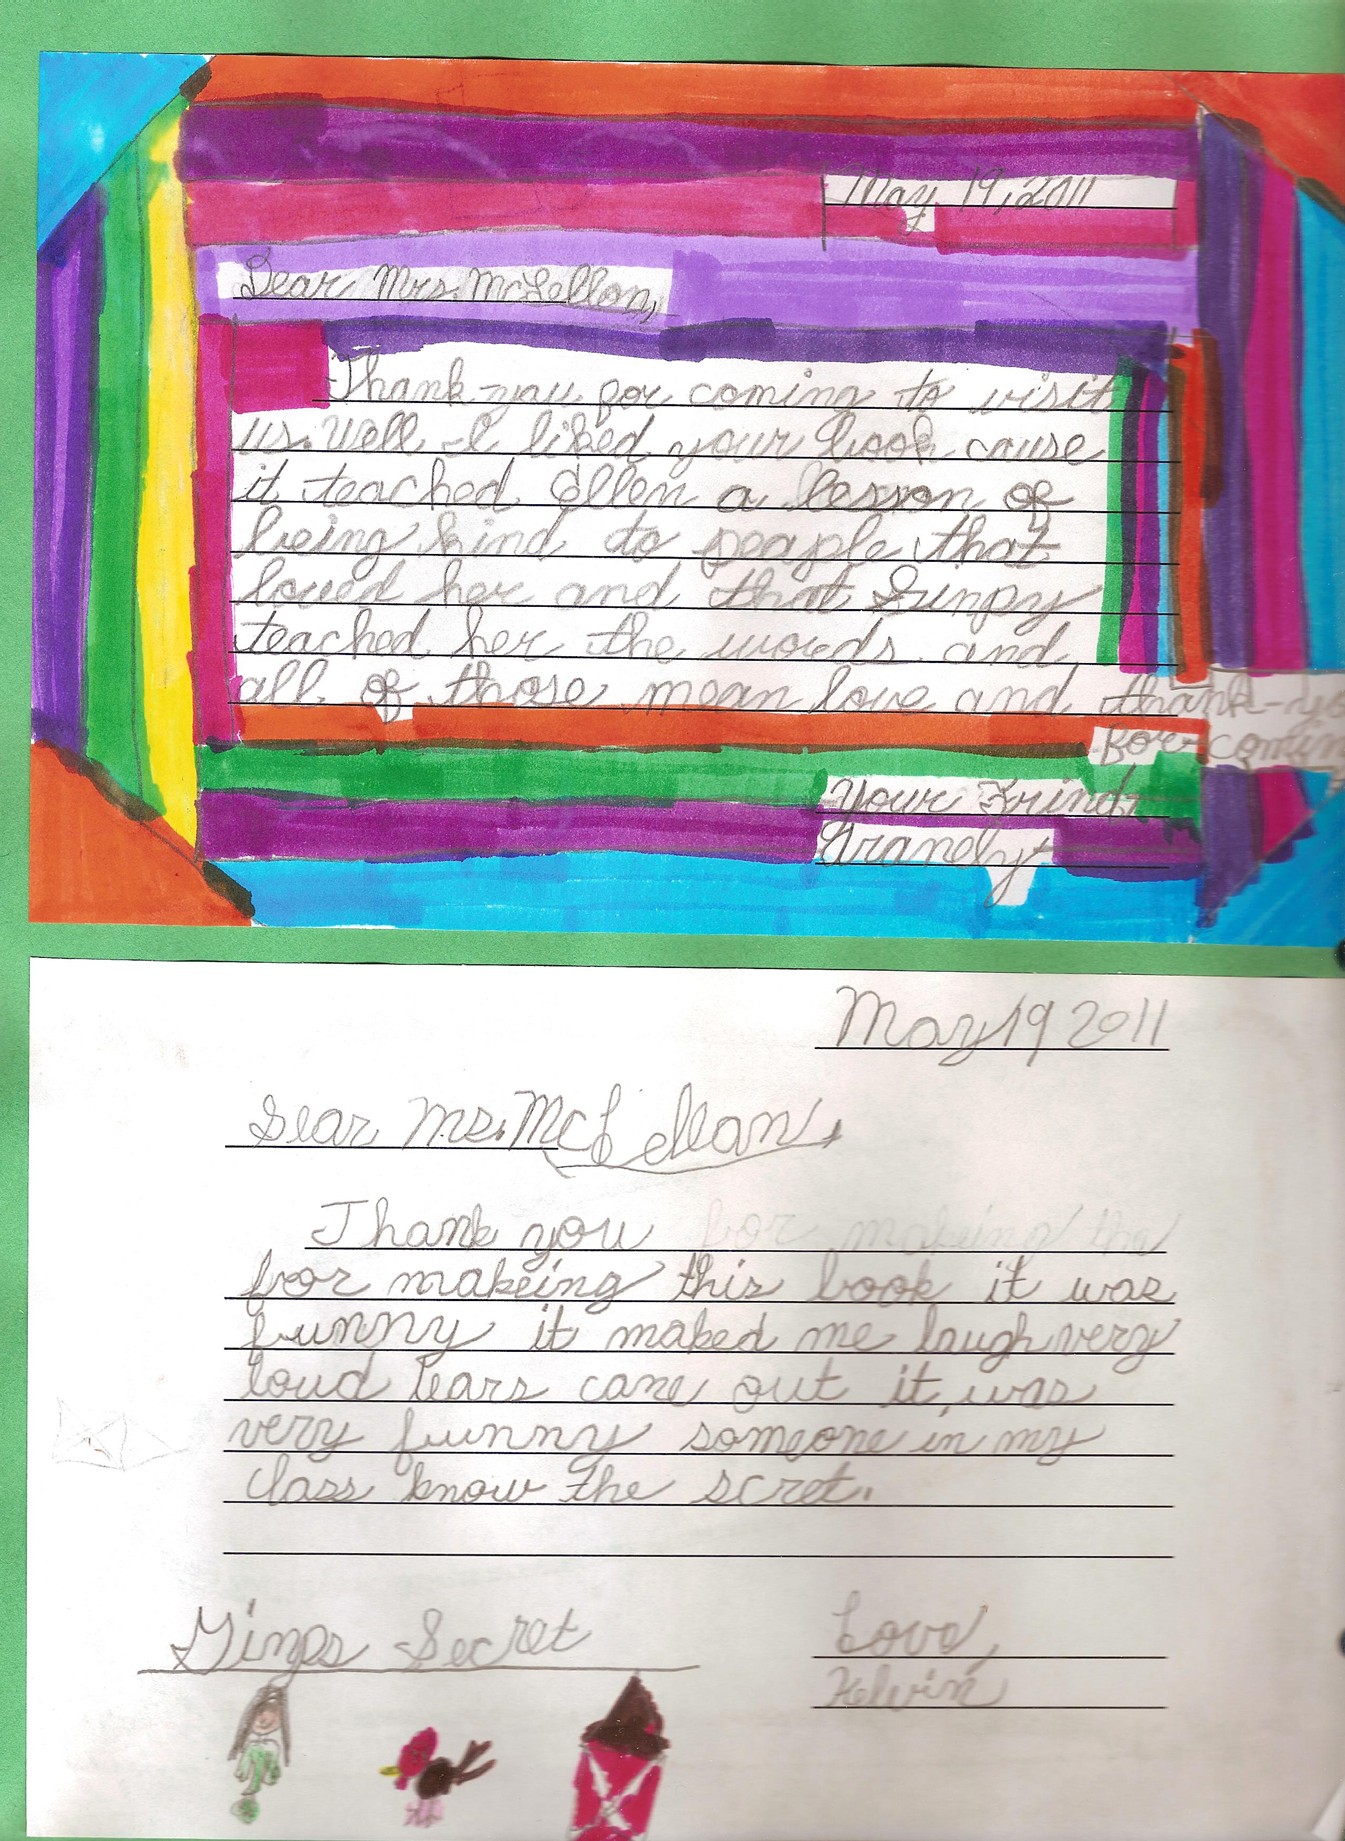 May 19, 2011
Dear Mrs. McLellan,
Thank-you for coming to visit
us. Well I liked your book cause
it teached Ellen a lesson of
being kind to people that
loved her and that
teached her the words and
all of those mean love and thank-yo
for comin
Your Frind,
May 19 2011
Dear Ms. McLellan,
Thank you for makeing the
for makeing this book it was
funny it maked me laugh very
loud tears came out it was
very funny someone in my
class know the scret.
Secret
Love,
Kelvin